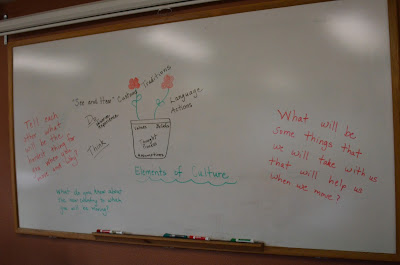 Tell each
other what
will be the
hardest thing for
you when you
move and why?
"See and Hear"
Customs
Traditions
Language
Actions
Do
Think
Values Beliefs
Thought
Assumptions
Elements of Culture
What do you know about
the new country to which
you will be moving?
What will be
some things that
we will take with us
that will help us
when we move?